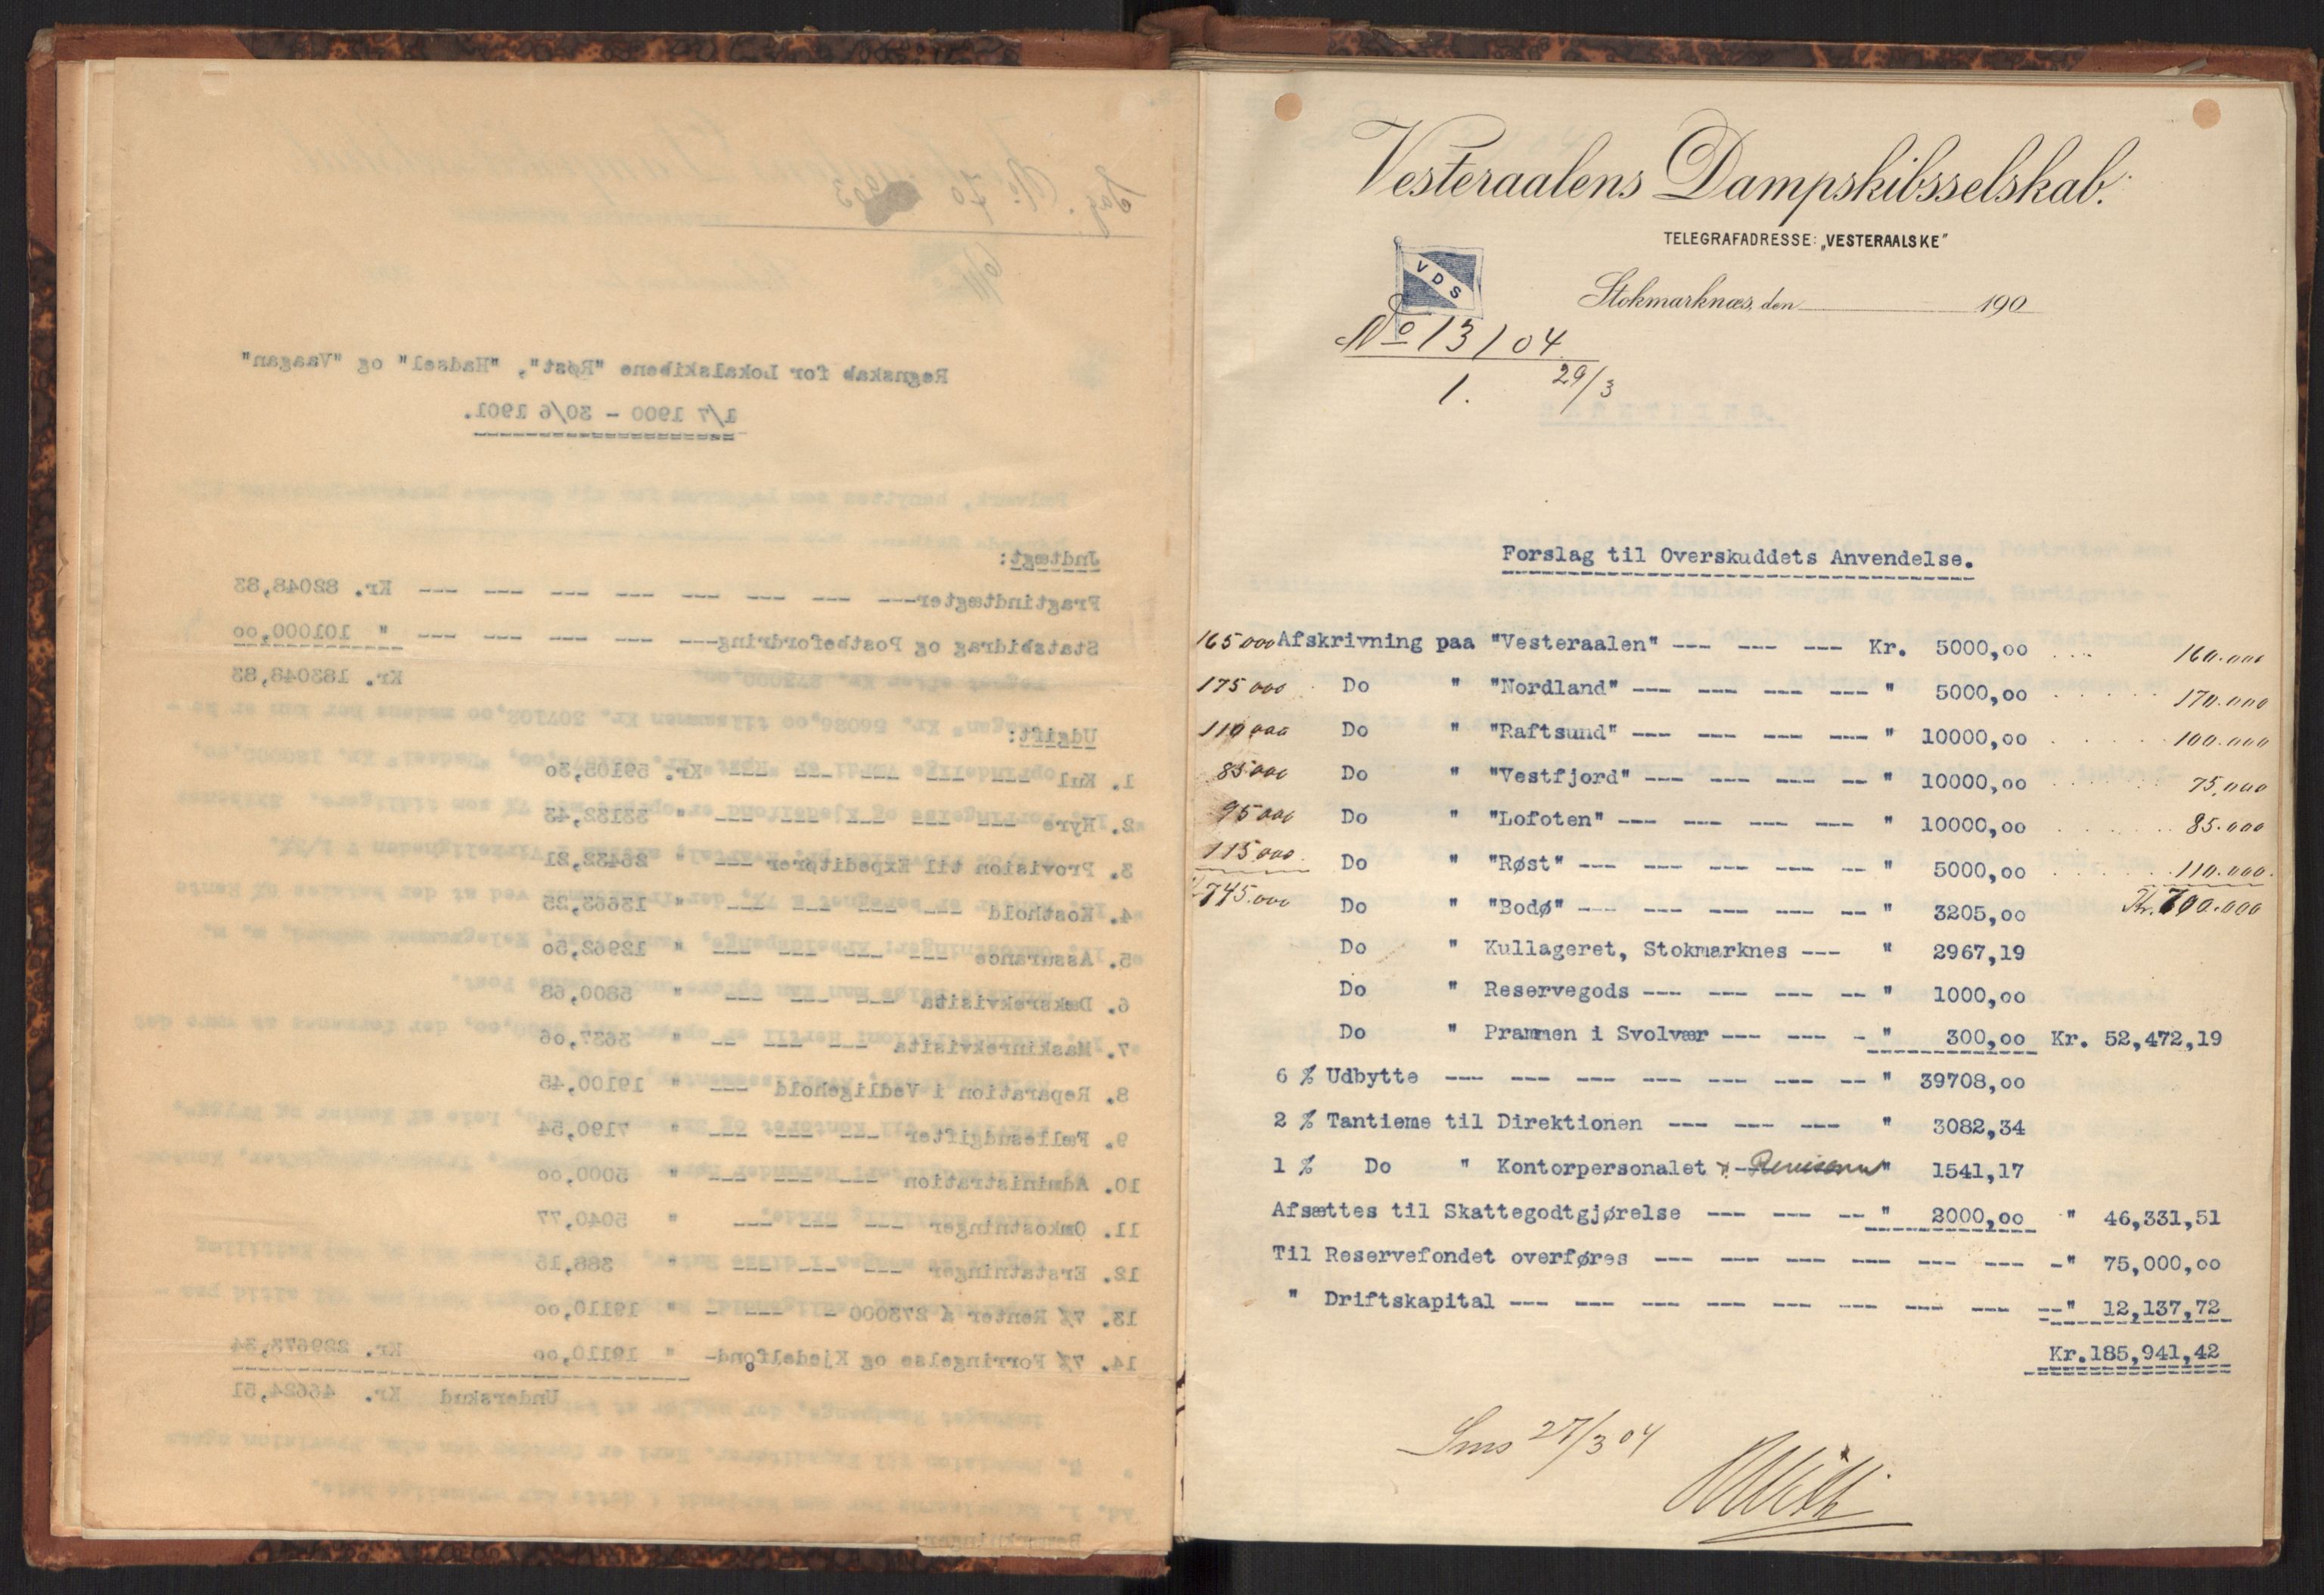 Jag. No. 70 1903
Regnskab for Lokalskibene "Røst", "Hadsel" og "Vaagan"
1/7 1900 - 30/6 1901.
Indtægt:
Fragtindtægter--- --- --- --- --- --- --- --- Kr. 82048,83
Statsbidrag og Postbefordring--- --- --- --- --- " 101000,oo
Kr. 183048,83
Udgift:
1. Kul --- --- --- --- --- Kr. 59105,3o
2. Hyre --- --- --- --- --- " 33132,43
3. Provision til Expeditører --- --- " 26432,21
4. Kosthold --- --- --- --- " 13663,25
5. Assurance --- --- --- --- " 12962,5o
6. Dæksrekvisita --- --- --- --- " 5800,68
7. Maskinrekvisita --- --- -- " 3637,o6
8. Reparation i Vedligehold --- " 19100,45
9. Fællesudgifter --- --- --- --- " 7190,54
10. Administration --- --- --- --- " 5000,oo
11. Omkostninger --- --- --- --- " 5040,77
12. Erstatninger --- --- --- --- " 388,15
13. 7% Renter á 273000 - --- --- - " 19110,oo
14. 7% Forringelse og Kjedelfond- " 19110,oo Kr. 229673,34
Underskud Kr. 46624,51
Vesteraalens Dampskibsselskab.
TELEGRAFADRESSE: „VESTERAALSKE"
VDS
Stokmarknæs, den 190
No 13/04
1. 29/3
Forslag til Overskuddets Anvendelse.
165000 Afskrivning paa "Vesteraalen" --- --- --- Kr. 5000,oo ... 160.000
175000 Do " "Nordland" --- --- --- --- " 5000,oo 170.000
110000 Do " "Raftsund" --- --- --- --- " 10000,oo 100.000
85000 Do " "Vestfjord" --- --- --- -- " 10000,oo 75.000
95000 Do " "Lofoten" --- --- --- --- " 10000,oo 85.000
115000. Do " "Røst" --- --- --- --- -- " 5000,oo 110.000.
745.000 Do " "Bodø" --- --- --- --- -- " 3205,oo Kr. 700.000
Do " Kullageret, Stokmarknes --- " 2967,19
Do " Reservegods --- --- --- -- " 1000,oo
Do " Prammen i Svolvær --- --- - " 300,oo Kr. 52,472,19
6 % Udbytte --- --- --- --- --- --- -- " 39708,oo
2 % Tantieme til Direktionen --- --- --- " 3082,34
1 % Do " Kontorpersonalet + Revisorer " 1541,17
Afsættes til Skattegodtgjørelse --- --- -- " 2000,oo " 46,331,51
Til Reservefondet overføres --- --- --- --- --- --- -" 75,000,oo
" Driftskapital --- --- --- --- --- --- --- --- --" 12,137,72
Kr.185,941,42
Sms 27/3 04
RWith